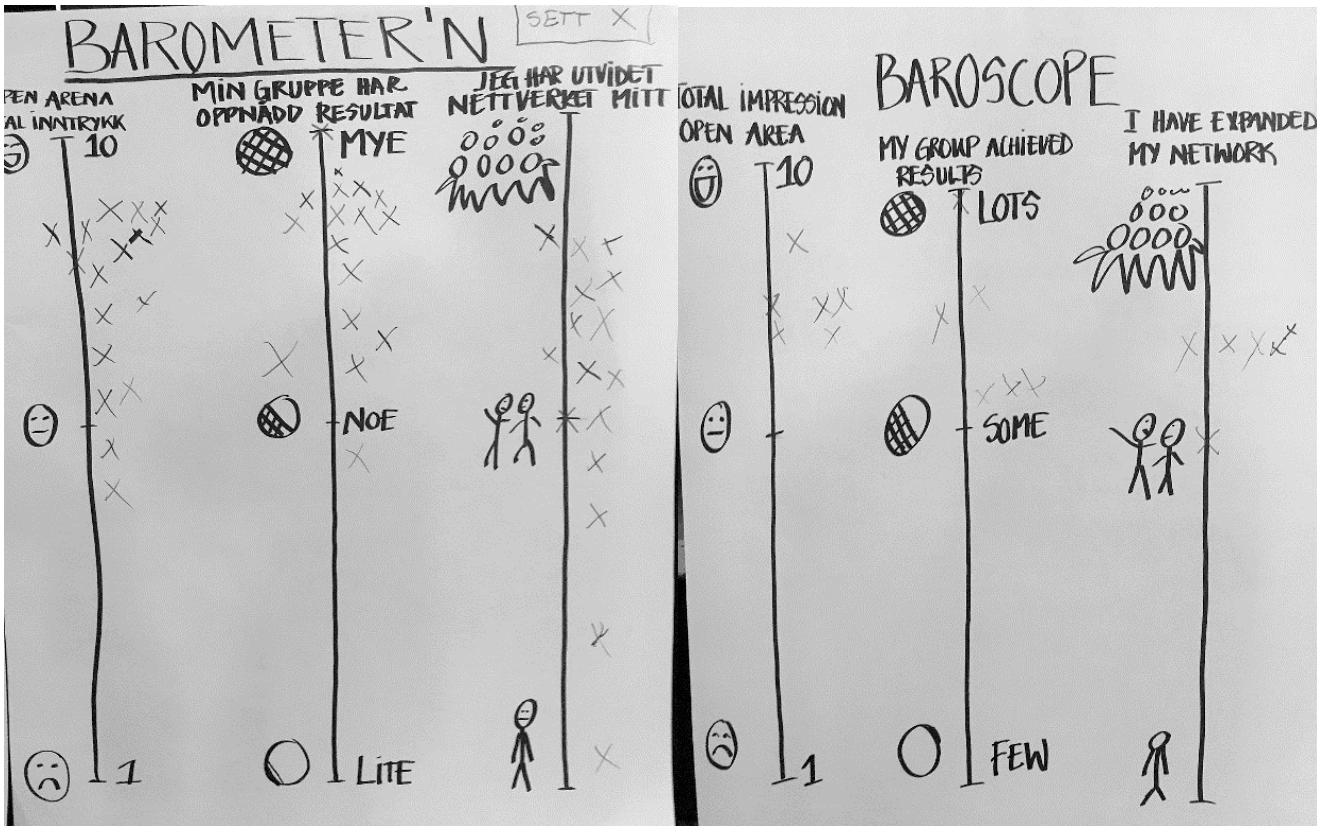 BAROMETER'N
SETT X
PEN ARENA
AL INNTRYKK
10
1
MIN GRUPPE HAR
OPPNÅDD RESULTAT
MYE
NOE
LITE
JEG HAR UTVIDET
NETTVERKET MITT
BAROSCOPE
TOTAL IMPRESSION
OPEN AREA
10
1
MY GROUP ACHIEVED
RESULTS
LOTS
SOME
FEW
I HAVE EXPANDED
MY NETWORK